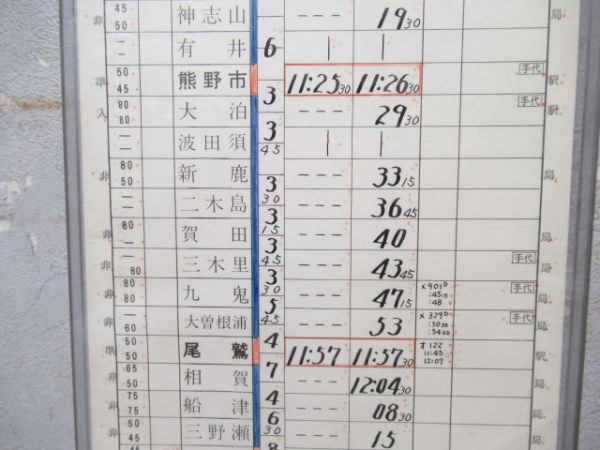 45 50 神志山 --- 19 30 局
非 — — 有井 6 | |
準 50 45 熊野市 11:25 30 11:26 30 手代 駅
入 80 80 大泊 3 --- 29 30 手代 駅
— — 波田須 3 45 | |
非 80 50 新鹿 3 30 --- 33 15 局
— — 二木島 3 15 --- 36 45
非 80 — 賀田 3 45 --- 40 局
非 — 80 三木里 3 30 --- 43 45 手代 局
非 80 80 九鬼 5 45 --- 47 15 ×901D :45 15 :48 手代 局
非 — 60 大曽根浦 4 --- 53 ×329D :50 30 :54 20 手代 局
準 50 50 尾鷲 7 11:57 11:57 30 オ122 11:45 12:07 駅
非 65 50 相賀 4 --- 12:04 30 局
非 75 75 船津 6 30 --- 08 30 局
非 50 45 三野瀬 8 --- 15 局